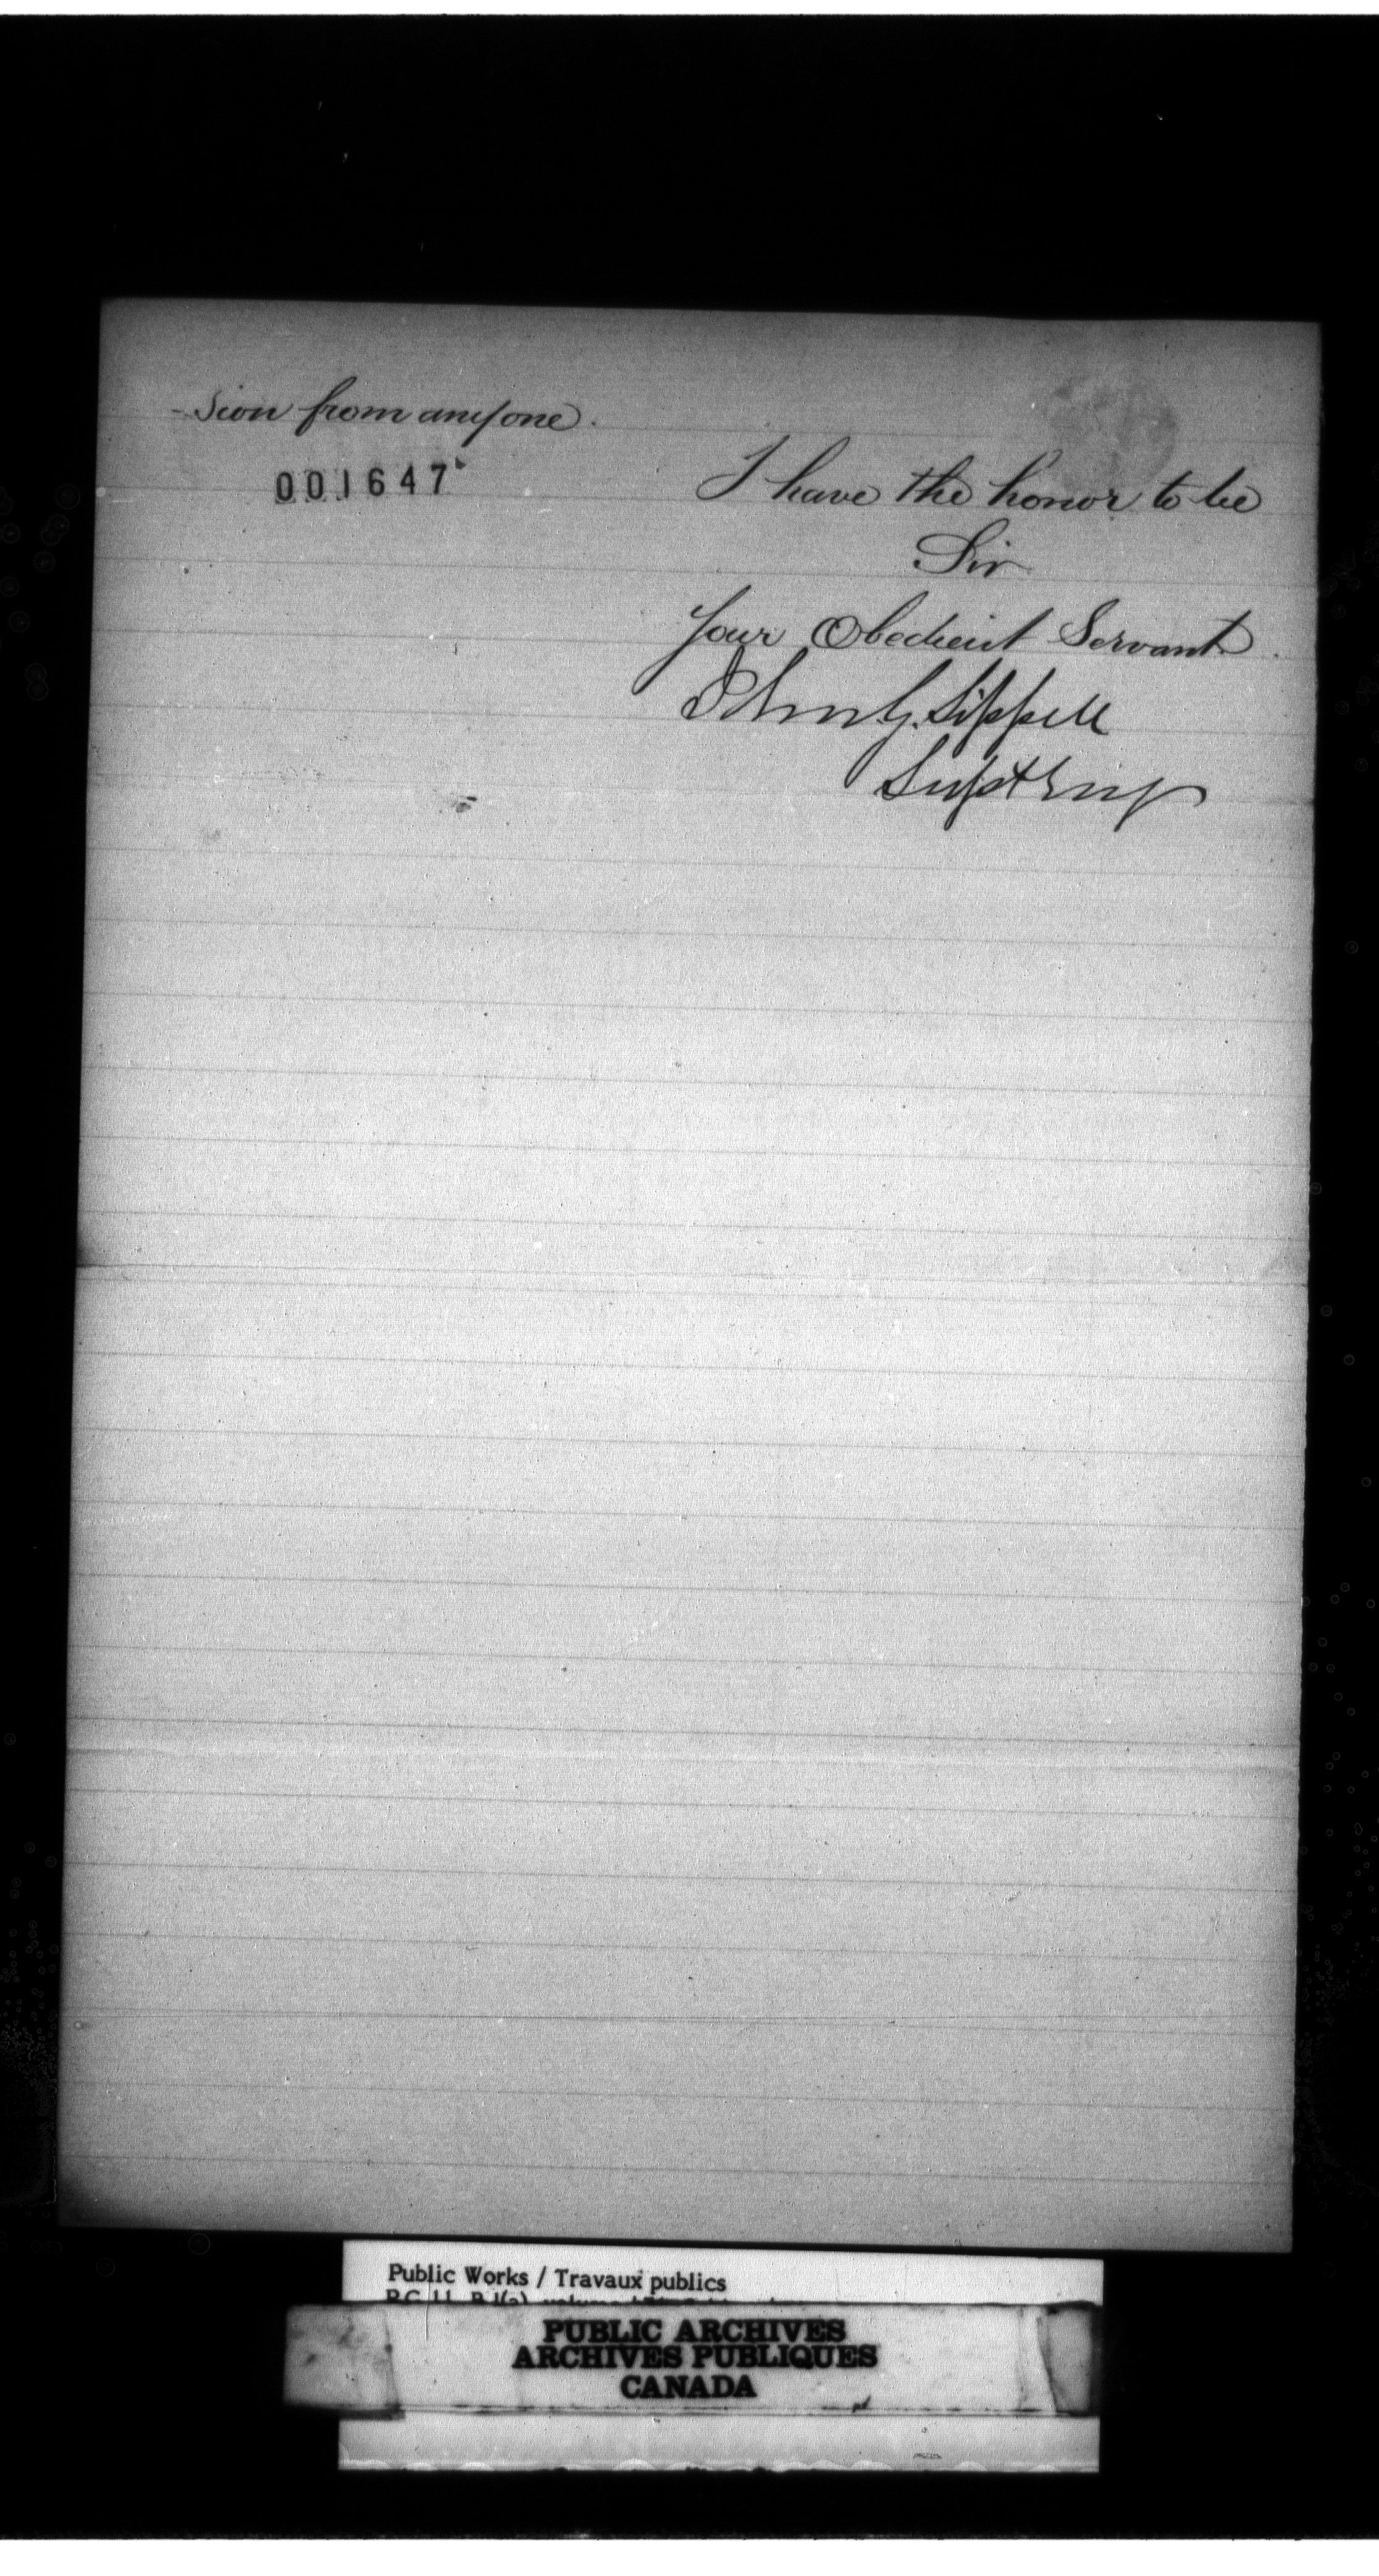 -sion from anyone.
001647
I have the honor to be
Sir
Your Obedient Servant
G. Sippell
Supt Eng
Public Works / Travaux publics
PUBLIC ARCHIVES
ARCHIVES PUBLIQUES
CANADA